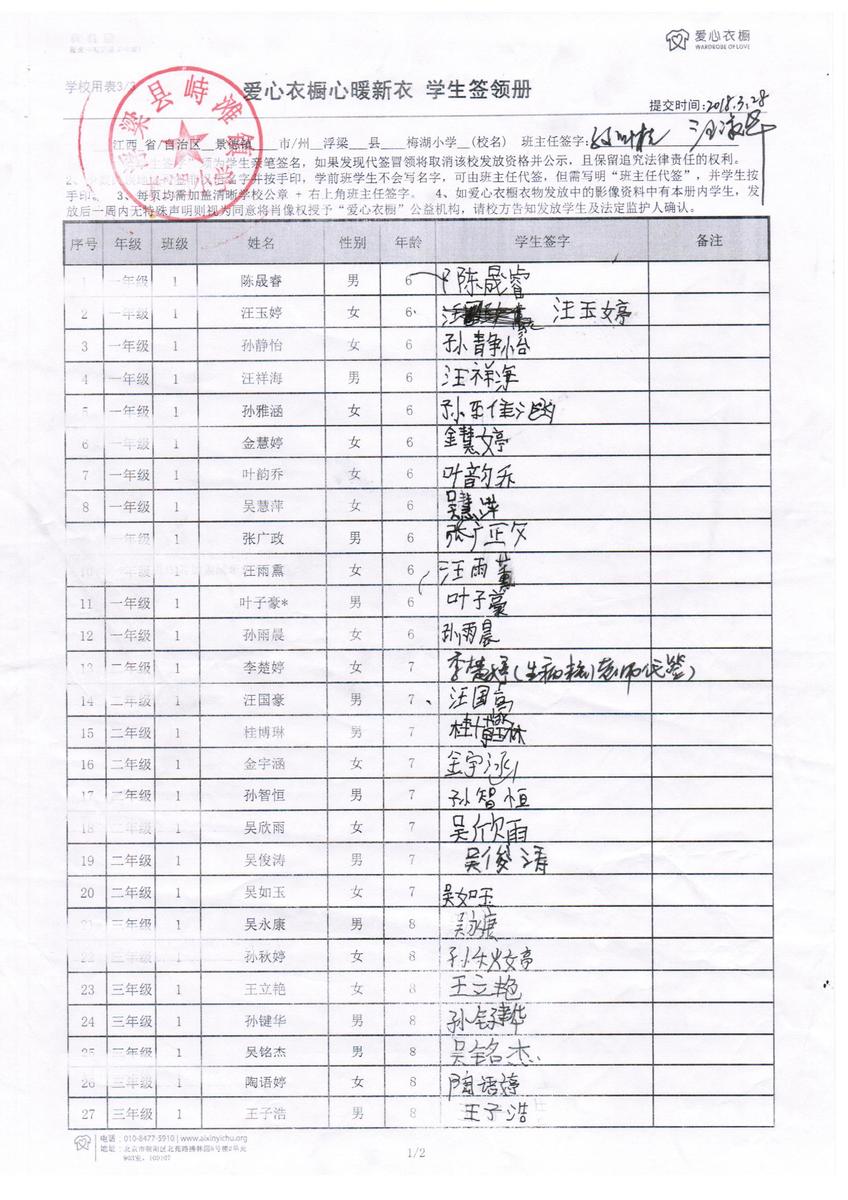 爱心衣橱
WARDROBE OF LOVE
学校用表3/3
爱心衣橱心暖新衣 学生签领册
提交时间:2018.3.28
江西 省/自治区__景德镇____市/州__浮梁___县____梅湖小学__(校名) 班主任签字:
为学生亲笔签名,如果发现代签冒领将取消该校发放资格并公示,且保留追究法律责任的权利。
签字并按手印,学前班学生不会写名字,可由班主任代签,但需写明“班主任代签”,并学生按
手印。 3、每页均需加盖清晰学校公章 + 右上角班主任签字。 4、如爱心衣橱衣物发放中的影像资料中有本册内学生,发
放后一周内无特殊声明则视为同意将肖像权授予“爱心衣橱”公益机构,请校方告知发放学生及法定监护人确认。
序号 年级 班级 姓名 性别 年龄 学生签字 备注
1 一年级 1 陈晟睿 男 6 陈晟睿
2 一年级 1 汪玉婷 女 6 汪玉婷
3 一年级 1 孙静怡 女 6 孙静怡
4 一年级 1 汪祥海 男 6 汪祥海
5 一年级 1 孙雅涵 女 6
6 一年级 1 金慧婷 女 6 金慧婷
7 一年级 1 叶韵乔 女 6 叶韵乔
8 一年级 1 吴慧萍 女 6 吴慧萍
一年级 1 张广政 男 6 张广政
10 一年级 1 汪雨熏 女 6 汪雨薰
11 一年级 1 叶子豪* 男 6 叶子豪
12 一年级 1 孙雨晨 女 6 孙雨晨
13 二年级 1 李楚婷 女 7 李楚婷(生病 老师代签)
14 二年级 1 汪国豪 男 7 汪国豪
15 二年级 1 桂博琳 男 7 桂博琳
16 二年级 1 金宇涵 女 7 金宇涵
17 二年级 1 孙智恒 男 7 孙智恒
18 二年级 1 吴欣雨 女 7 吴欣雨
19 二年级 1 吴俊涛 男 7 吴俊涛
20 二年级 1 吴如玉 女 7 吴如玉
21 三年级 1 吴永康 男 8 吴永康
22 三年级 1 孙秋婷 女 8 孙秋婷
23 三年级 1 王立艳 女 8 王立艳
24 三年级 1 孙键华 男 8 孙键华
25 三年级 1 吴铭杰 男 8 吴铭杰
26 三年级 1 陶语婷 女 8 陶语婷
27 三年级 1 王子浩 男 8 王子浩
电话:010-8477-5910 | www.aixinyichu.org
地址:北京市朝阳区北苑路拂林园2号单元
903室,100107
1/2